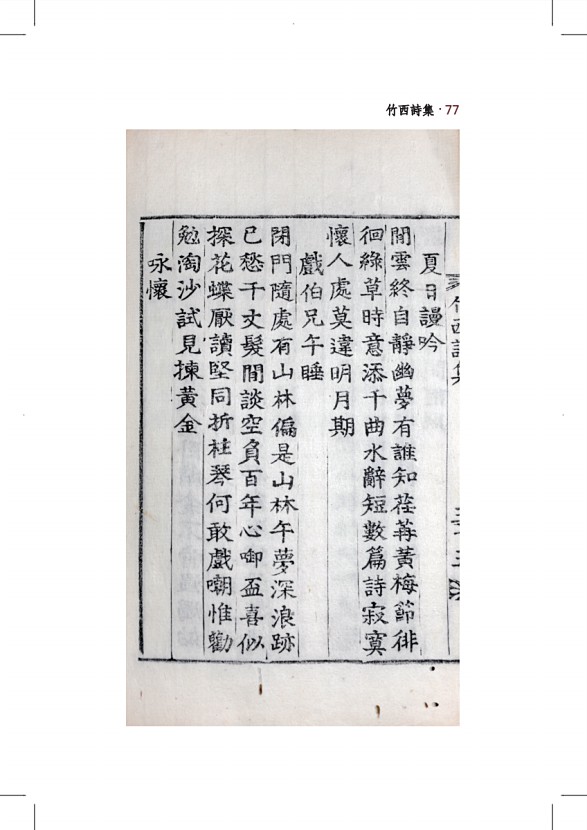 竹西詩集 · 77
竹西詩集
夏日謾吟
閒雲終自靜幽夢有誰知荏苒黃梅節徘
徊綠草時意添千曲水辭短數篇詩寂寞
懷人處莫違明月期
戲伯兄午睡
閉門隨處有山林偏是山林午夢深浪跡
已愁千丈髮閒談空負百年心啣盃喜似
探花蝶厭讀堅同折桂琴何敢戲嘲惟勸
勉淘沙試見揀黃金
咏懷